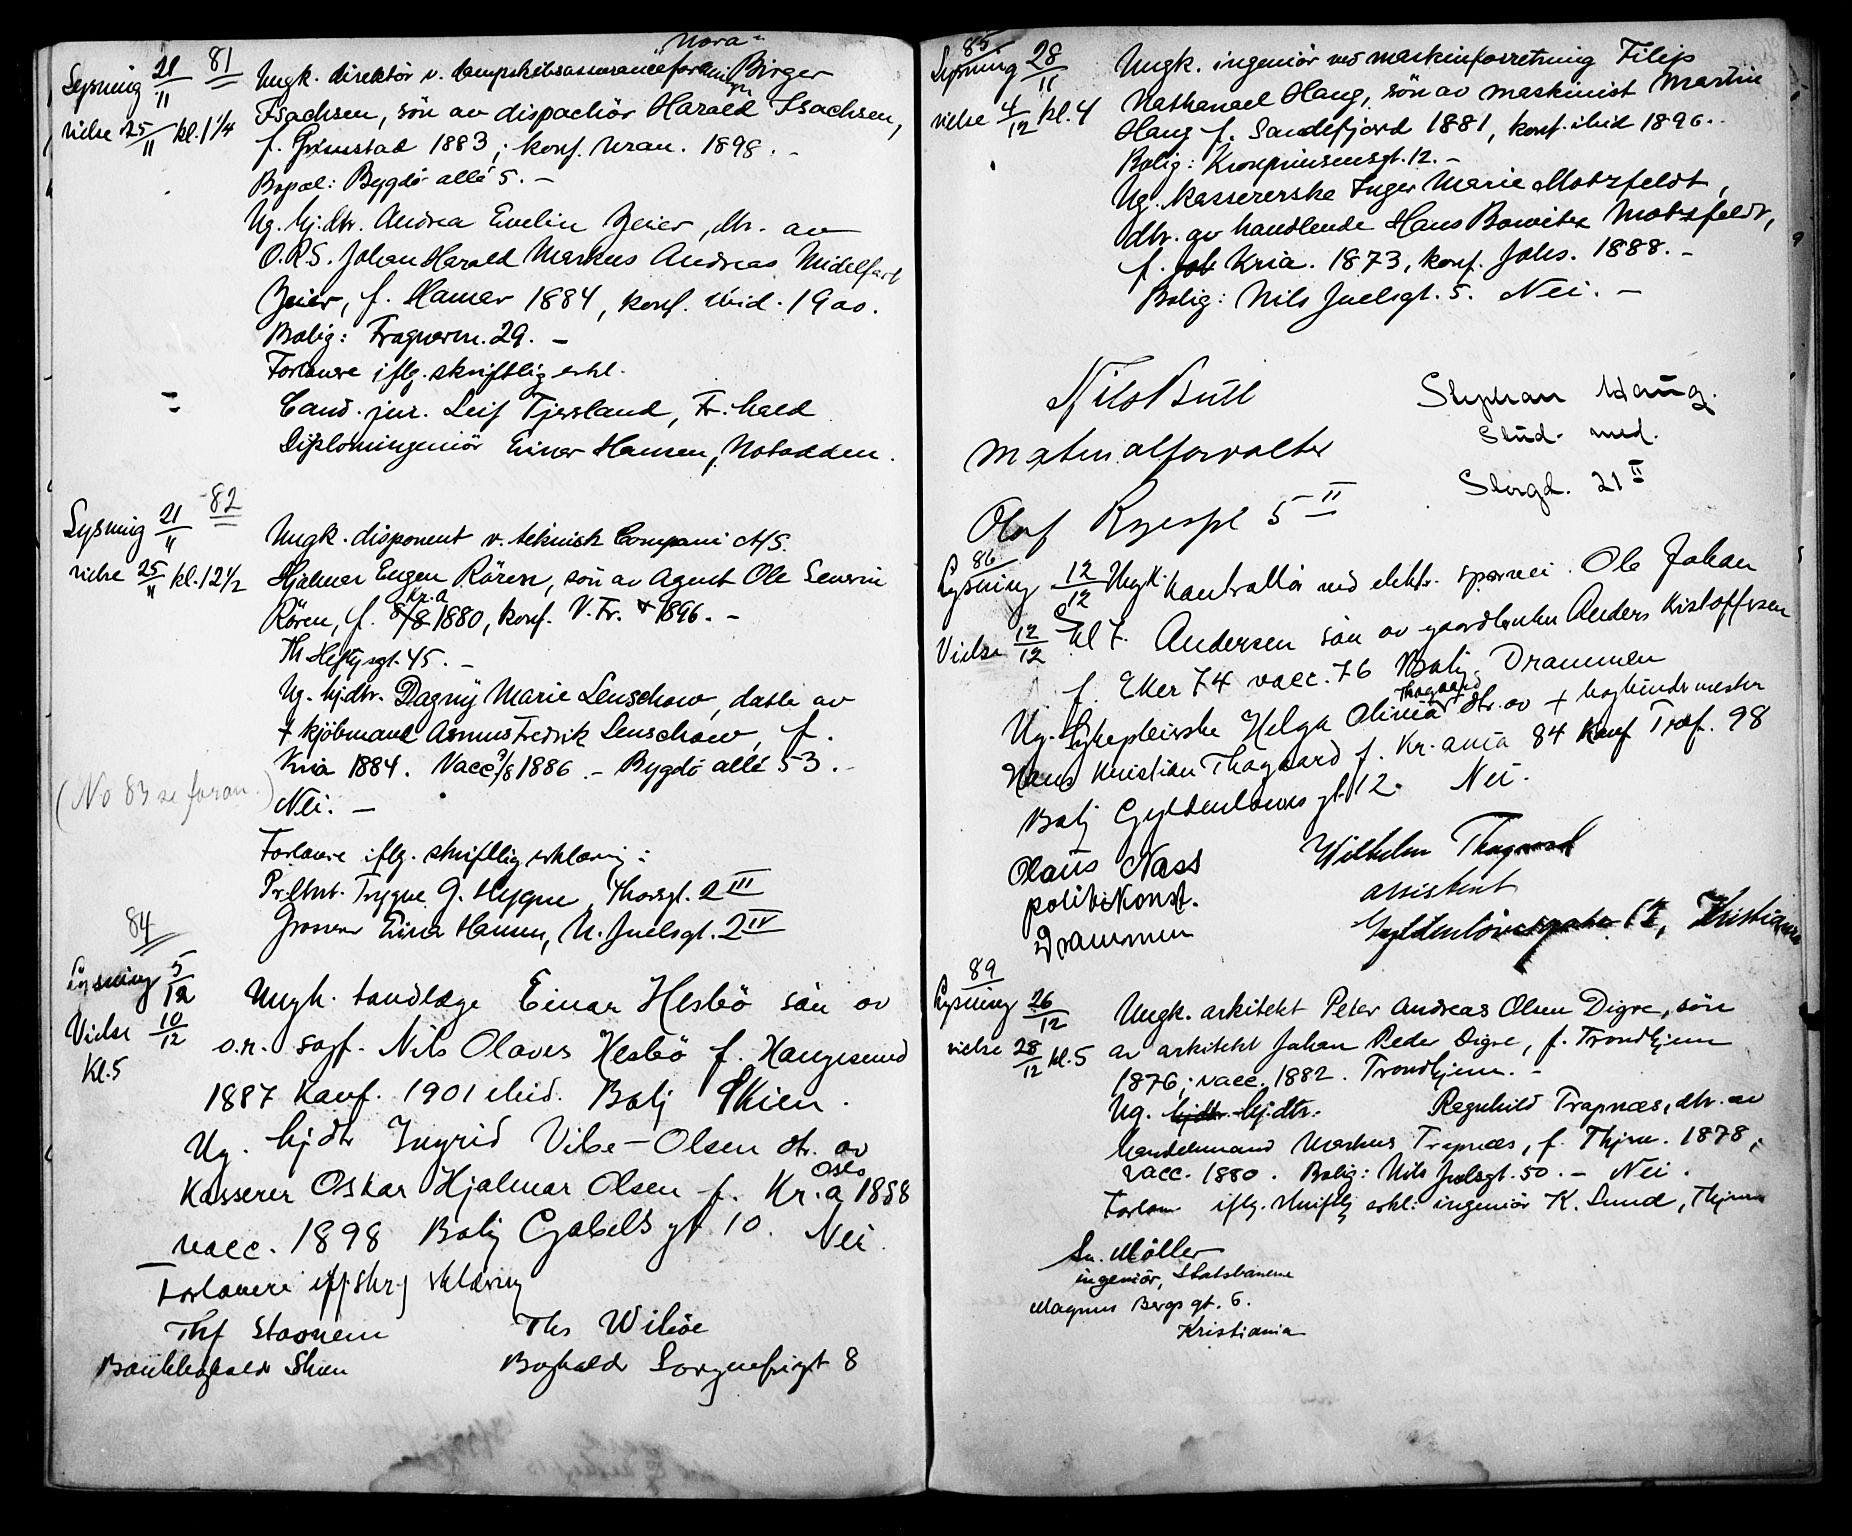 81
Lysning 21/11
vielse 25/11 kl. 1 1/4
"Nora"
Ungk. direktør v. dampskibsassuranceforenin- Birger
gn
Isachsen, sön av dispachör Harald Isachsen,
f. Grimstad 1883; konf. Uran. 1898. -
Bopæl: Bygdö allé 5. -
Ug. hj.dtr. Andrea Evelin Zeier, dtr. av
O.R.S. Johan Harald Markus Andreas Midelfart
Zeier, f. Hamar 1884, konf. ibid. 1900.
Bolig: Frognerv. 29. -
Forlovere iflg. skriftlig erkl.
Cand. jur. Leif Tjersland, Fr.hald
Diplomingeniör Einar Hansen, Notodden.
82
Lysning 21/11
vielse 25/11 kl. 12 1/2
Ungk. disponent v. teknisk Compani A/S.
Hjalmar Eugen Rören, sön av Agent Ole Severin
Kr.a
Rören, f. 8/8 1880, konf. V. Fr. 1896. -
Th Heftysgt. 45. -
Ug. hj.dtr. Dagny Marie Lenschow, datter av
† kjöbmand Asmus Fredrik Lenschow, f.
Kria 1884. Vacc. 9/8 1886. - Bygdö allé 53. -
Nei. -
(No 83 se foran.)
Forlovere iflg. skriftlig erklæring:
Pr.ltnt. Trygve G. Hygen, Thorsgt. 2 III
Grosserer Einar Hansen, N. Juelsgt. 2 IV
84
Lysning 5/12
Vielse 10/12
Kl. 5
Ungk. tandlæge Einar Hesbö sön av
o.r. sagf. Nils Olaves Hesbö f. Haugesund
1887 Konf. 1901 ibid. Bolig Skien.
Ug. hjdtr Ingrid Vibe-Olsen dtr. av
Oslo
Kasserer Oskar Hjalmar Olsen f. Kr.a 1888
vacc. 1898 Bolig Gabels gt 10. Nei.
Forlovere iflg. skr. erklæring
Thf Stavnem
Bankbogholder Skien
Ths Wiböe
Boghold Sorgenfrigt 8
85.
Lysning 28/11
vielse 4/12 kl. 4
Ungk. ingeniör ved maskinforretning Filip
Nathanael Haug, sön av maskinist Martin
Haug f. Sandefjord 1881, konf. ibid 1896. -
Bolig: Kronprinsensgt. 12. -
Ug. kassererske Inger Marie Motzfeldt,
dtr. av handlende Hans Bowitz Motzfeldt,
f. Kria. 1873, konf. Johs. 1888. -
Bolig: Nils Juelsgt. 5. Nei. -
Nils Bull
Materialforvalter
Olaf Ryespl 5 II
Stephan Haug.
Stud. med.
Storgd. 21 II
86
Lysning 12/12
Vielse 12/12 kl 7.
Ungk. Kontrollör ved elektr. sporvei. Ole Johan
Andersen sön av gaardbruker Anders Kistoffersen
f. Eker 74 vacc. 76 Bolig Drammen
Thogaard
Ug. Sykepleierske Helga Olivia dtr. av † bogbindermester
Hans Kristian Thogaard f. Kr.ania 84 Konf Tref. 98
Bolig Gyldenlöves gt 12. Nei.
Olaus Nass
politikonst.
Drammen
Wilhelm Thogaard
assistent
Gyldenlövesgate 12, Kristiania
89
Lysning 26/12
vielse 28/12 kl. 5
Ungk. arkitekt Peter Andreas Olsen Digre, sön
av arkitekt Johan Peder Digre, f. Trondhjem
1876; vacc. 1882. Trondhjem. -
Ug. hjdtr. hj.dtr. Ragnhild Trapnæs, dtr. av
handelsmand Markus Trapnæs, f. Thjem. 1878;
vacc. 1880. Bolig: Nils Juelsgt. 50. - Nei.
Forlov iflg. skriftlig erkl: ingeniör K. Lund, Thjem
Sv. Möller
ingeniör, Statsbanene
Magnus Bergs gt. 6.
Kristiania